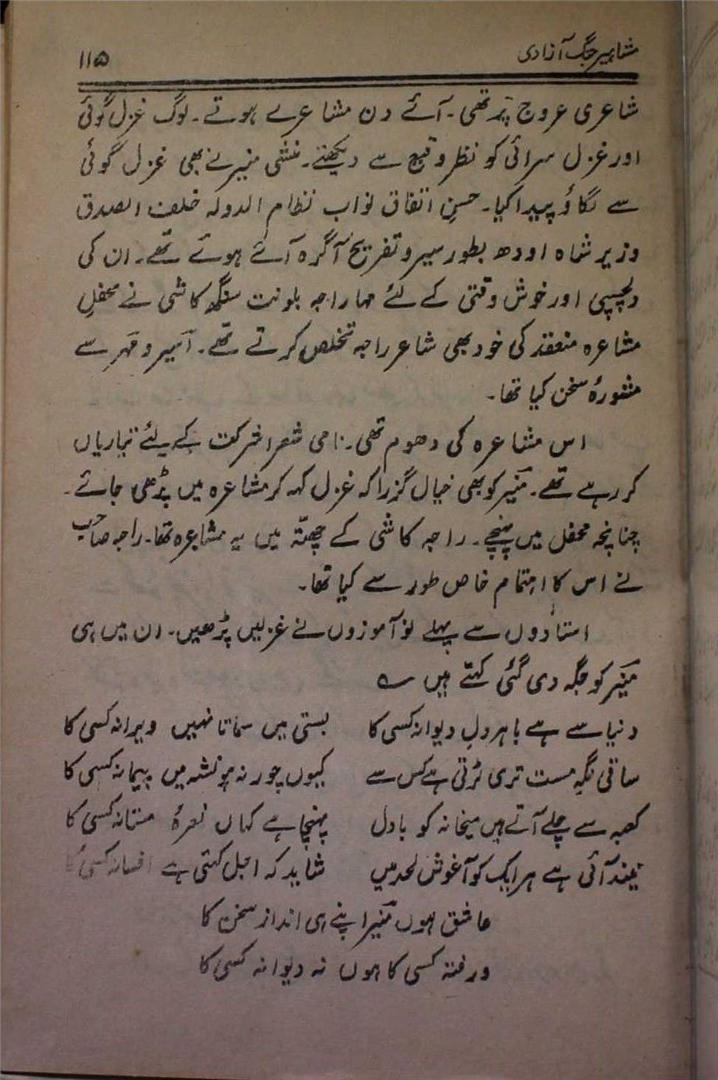 مشاہیر جنگ آزادی ۱۱۵
شاعری عروج پر تھی۔ آئے دن مشاعرے ہوتے۔ لوگ غزل گوئی
اور غزل سرائی کو نظر وقیع سے دیکھتے۔ منشی منیر نے بھی غزل گوئی
سے لگاؤ پیدا کیا۔ حسنِ اتفاق نواب نظام الدولہ خلف الصدق
وزیر شاہ اودھ بطور سیر و تفریح آگرہ آئے ہوئے تھے۔ ان کی
دلچسپی اور خوش وقتی کے لئے مہاراجہ بلونت سنگھ کاشی نے محفلِ
مشاعرہ منعقد کی خود بھی شاعر راجہ تخلص کرتے تھے۔ اسیر و مہر سے
مشورۂ سخن کیا تھا۔
اس مشاعرہ کی دھوم تھی۔ نامی شعرا شرکت کے لئے تیاریاں
کر رہے تھے۔ منیر کو بھی خیال گزرا کہ غزل کہہ کر مشاعرہ میں پڑھی جائے۔
چنانچہ محفل میں پہنچے۔ راجہ کاشی کے چھتہ میں یہ مشاعرہ تھا۔ راجہ صاحب
نے اس کا اہتمام خاص طور سے کیا تھا۔
استادوں سے پہلے نوآموزوں نے غزلیں پڑھیں۔ ان میں ہی
منیر کو جگہ دی گئی کہتے ہیں ؎
دنیا سے ہے باہر دلِ دیوانہ کسی کا بستی میں سماتا نہیں ویرانہ کسی کا
ساقی نگہِ مست تری لڑتی ہے کس سے کیوں چور نہ ہو نشہ میں پیمانہ کسی کا
کعبہ سے چلے آتے ہیں میخانہ کو بادل پہنچا ہے کہاں نعرۂ مستانہ کسی کا
نیند آئی ہے ہر ایک کو آغوش لحد میں شاید کہ اجل کہتی ہے افسانہ کسی کا
عاشق ہوں منیر اپنے ہی اندازِ سخن کا
ورفتہ کسی کا ہوں نہ دیوانہ کسی کا